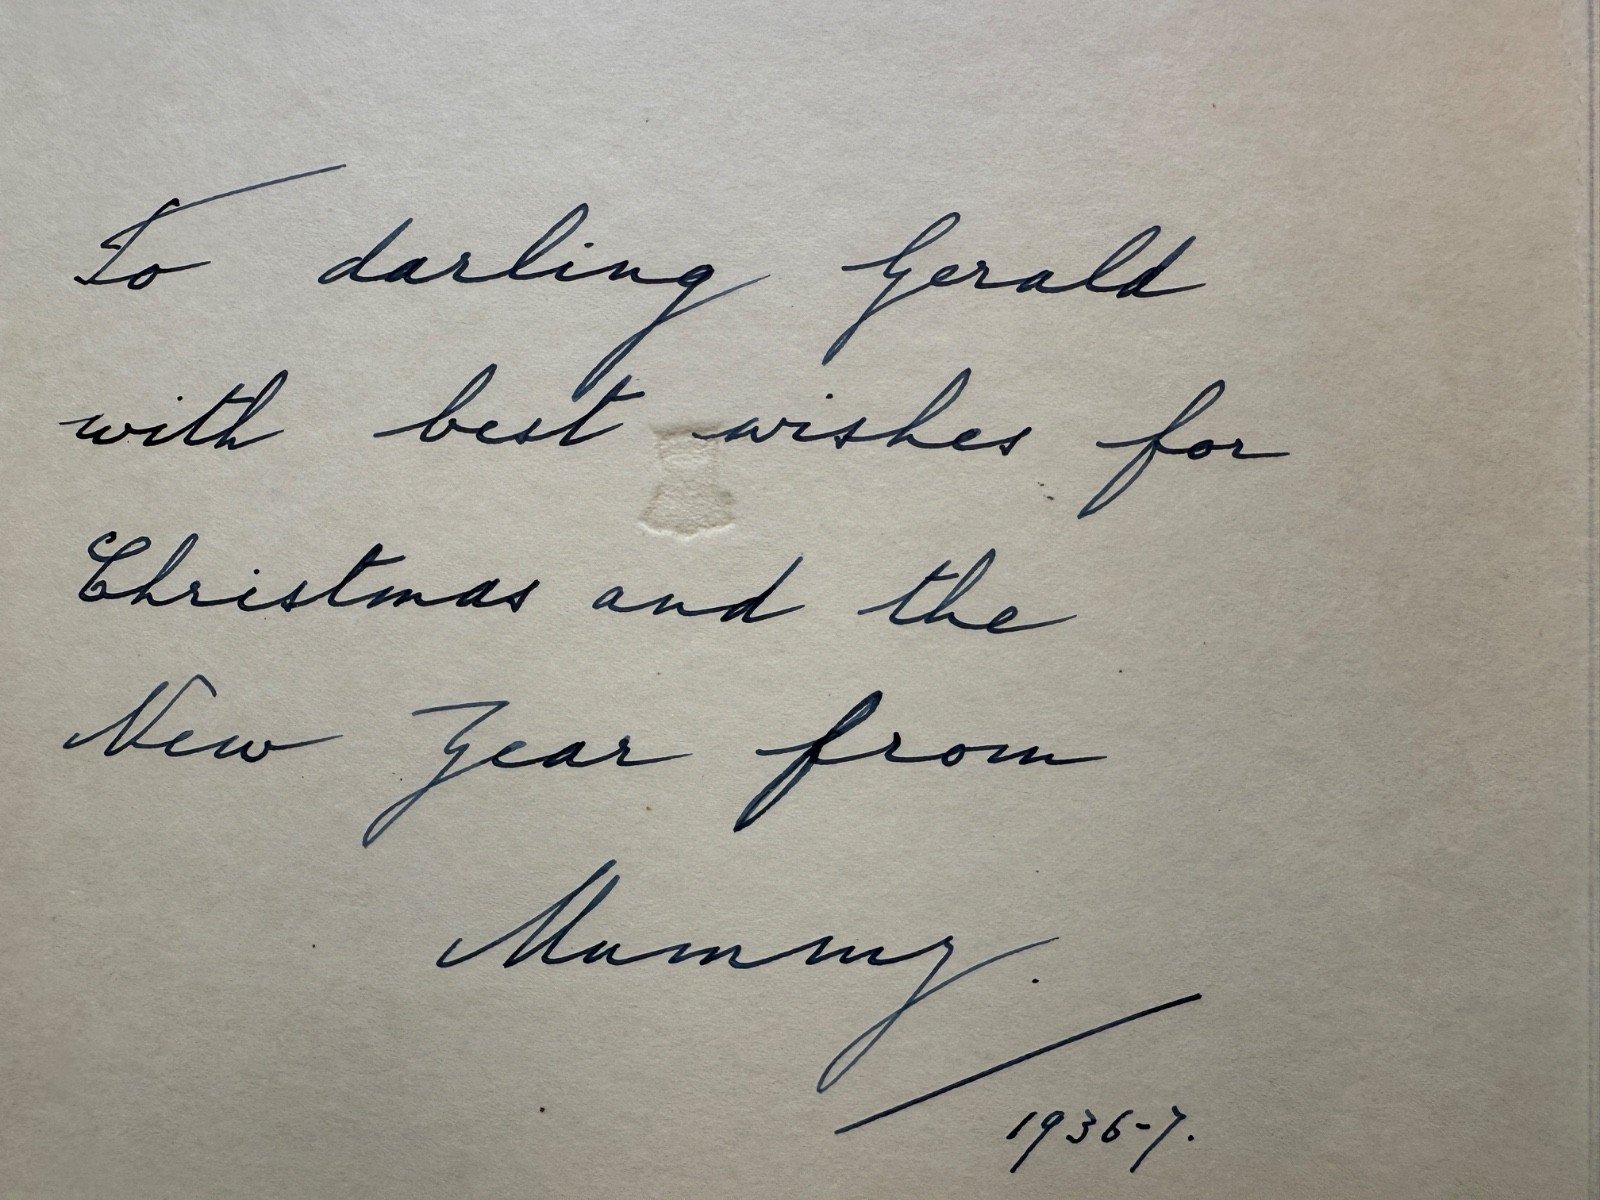 To darling Gerald
with best wishes for
Christmas and the
New Year from
Mummy.
1936-7.